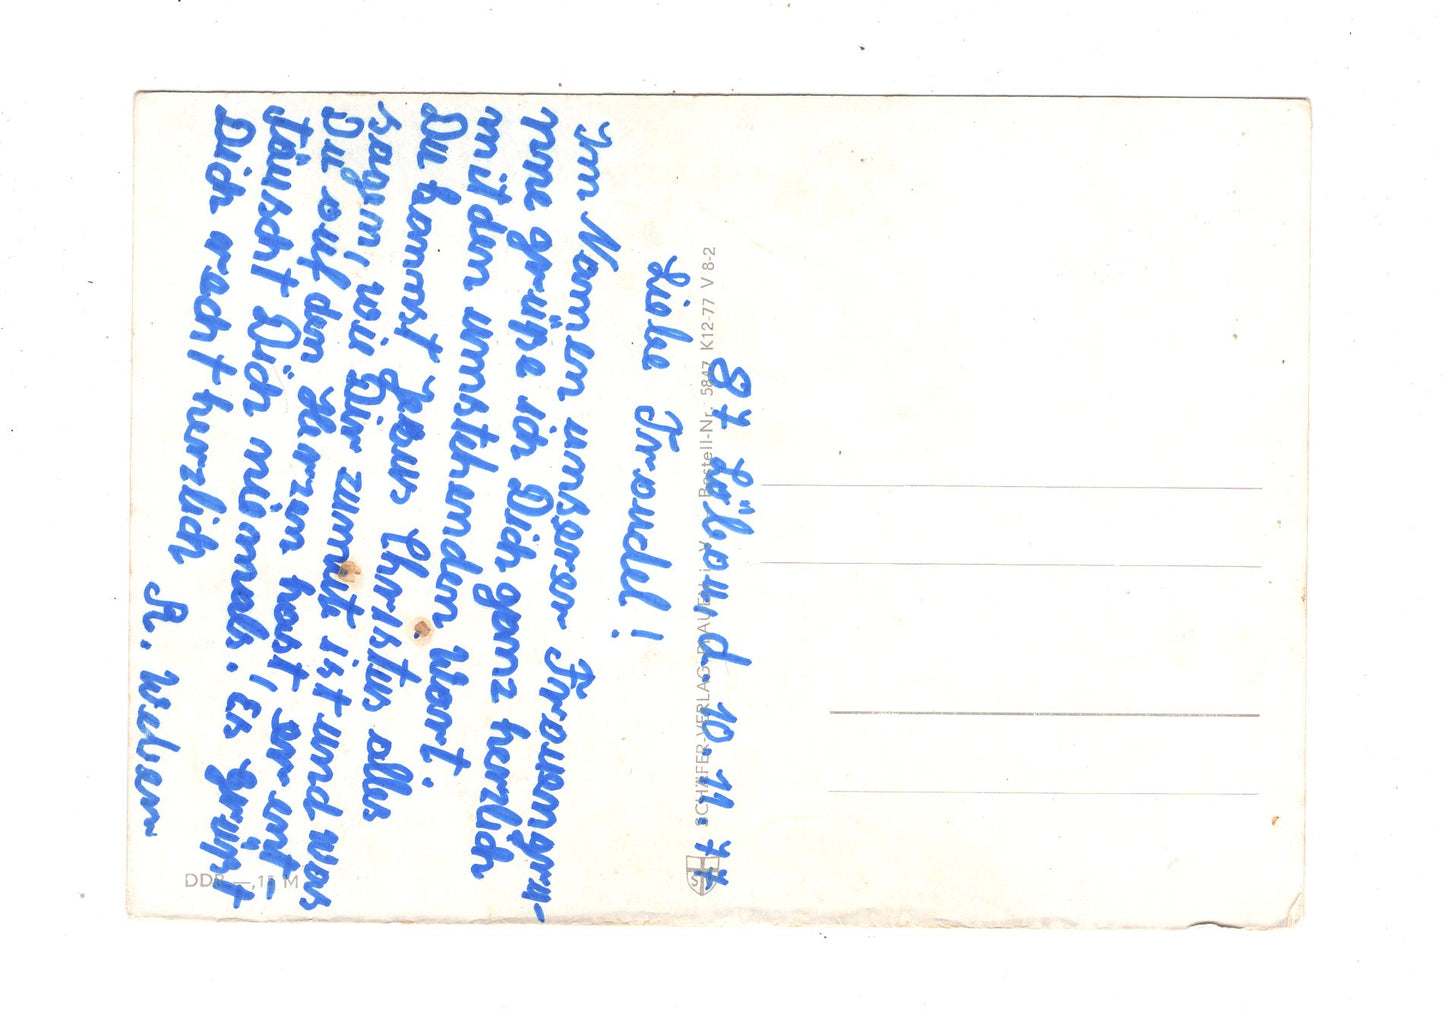 87 Löbau, d. 10.11.77
Liebe Traudel!
Im Namen unserer Frauengru-
ppe grüße ich Dich ganz herzlich
mit dem umstehenden Wort.
Du kannst Jesus Christus alles
sagen, wie Dir zumute ist und was
Du auf dem Herzen hast, er ent-
täuscht Dich niemals. Es grüßt
Dich recht herzlich
R. Weber
SCHÄFER-VERLAG PLAUEN i. V. Bestell-Nr. 5847 K12-77 V 8-2
S
DDR —,15 M